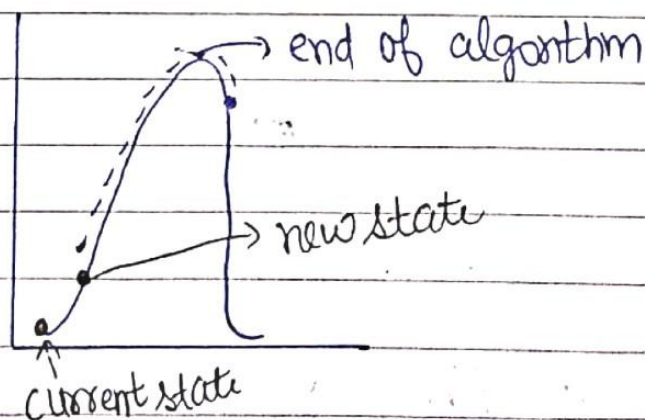 end of algorithm
new state
current state